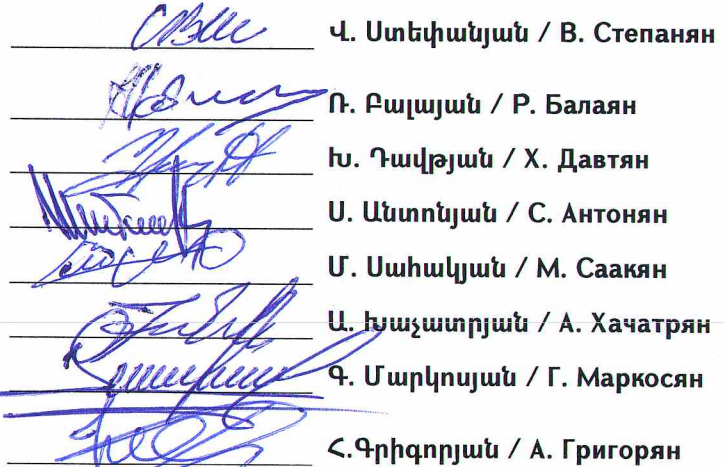 Վ. Ստեփանյան / В. Степанян
Ռ. Բալայան / Р. Балаян
Խ. Դավթյան / Х. Давтян
Ս. Անտոնյան / С. Антонян
Մ. Սահակյան / М. Саакян
Ա. Խաչատրյան / А. Хачатрян
Գ. Մարկոսյան / Г. Маркосян
Հ.Գրիգորյան / А. Григорян